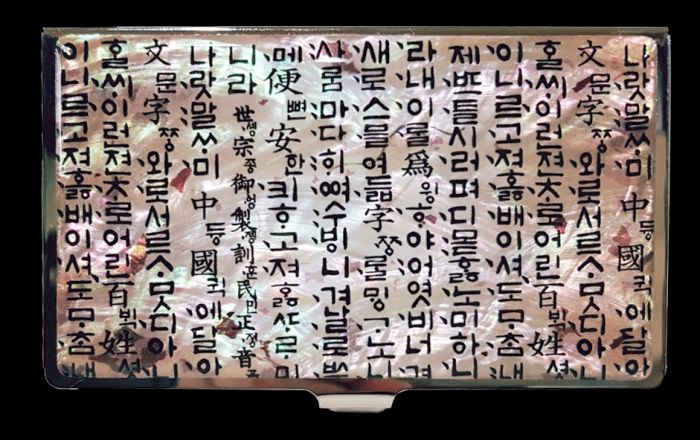 나랏말ᄊᆞ미中듕國귁에달아
文문字ᄍᆞᆼ와로서르ᄉᆞᄆᆞᆺ디아니
ᄒᆞᆯᄊᆡ이런젼ᄎᆞ로어린百ᄇᆡᆨ姓셩
이니르고져호ᇙ배이셔도ᄆᆞᄎᆞᆷ내
제ᄠᅳ들시러펴디몯ᄒᆞᇙ노미하니
라내이ᄅᆞᆯ爲윙ᄒᆞ야어엿비너겨
새로스믈여듧字ᄍᆞᆼᄅᆞᆯᄆᆡᇰᄀᆞ노니
사ᄅᆞᆷ마다ᄒᆡᅇᅧ수ᄫᅵ니겨날로ᄡᅮ
메便뼌安ᅙᅡᆫ킈ᄒᆞ고져ᄒᆞᇙᄯᆞᄅᆞ미
니라
世솅宗종御엉製졩訓훈民민正졍音ᅙᅳᆷ
나랏말ᄊᆞ미中듕國귁에달아
文문字ᄍᆞᆼ와로서르ᄉᆞᄆᆞᆺ디아니
ᄒᆞᆯᄊᆡ이런젼ᄎᆞ로어린百ᄇᆡᆨ姓셩
이니르고져호ᇙ배이셔도ᄆᆞᄎᆞᆷ내